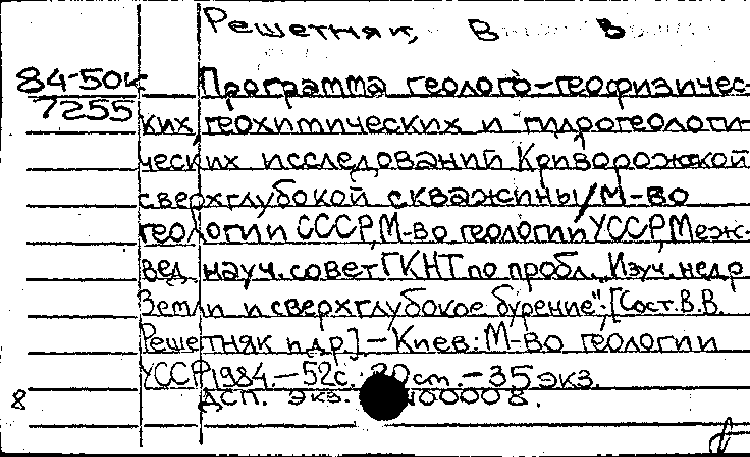 Решетняк, В
84-50к Программа геолого-геофизичес-
7255 ких, геохимических и гидрогеологи-
ческих исследований Криворожской
сверхглубокой скважины/М-во
геологии СССР, М-во геологии УССР, Меж-
вед. науч. совет ГКНТ по пробл. Изуч. недр
Земли и сверхглубокое бурение"; [Сост. В.В.
Решетняк и др.] - Киев: М-во геологии
УССР, 1984. - 52с.; 20см. - 35 экз.
8 ДСП. экз. 00008.